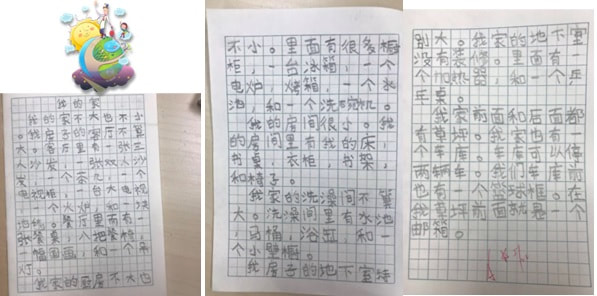 我的家
我的家不大也不小
。我房子的客厅不算
大。客厅里有一张三
人沙发，一张双人沙
发，一个茶几，一个
电视柜，一台大电视
，一个火炉，和一块
地毯。餐厅里面有一
张餐桌，把餐椅，
一幅国画，和一个吊
灯。
我家的厨房不大也
不小。里面有很多橱
柜，一台冰箱，一个
电炉，烤箱，一个水
池，和一个洗碗机。
我的房间很小。我
的房间里有我的床，
书桌，衣柜，书架，
和椅子。
我家的洗澡间不算
大。洗澡间里有水池
，马桶，浴缸，和一
个小壁橱。
我房子的地下室特
别大。我家的地下室
没有装修。里面有一
个加热器，和一个乒
桌。
我家前面和后面都
有草坪。我家也有一
个车库。车库可以停
两辆车。我们车库前
也有一个篮球框。在
我草坪前面就是一个
邮箱。